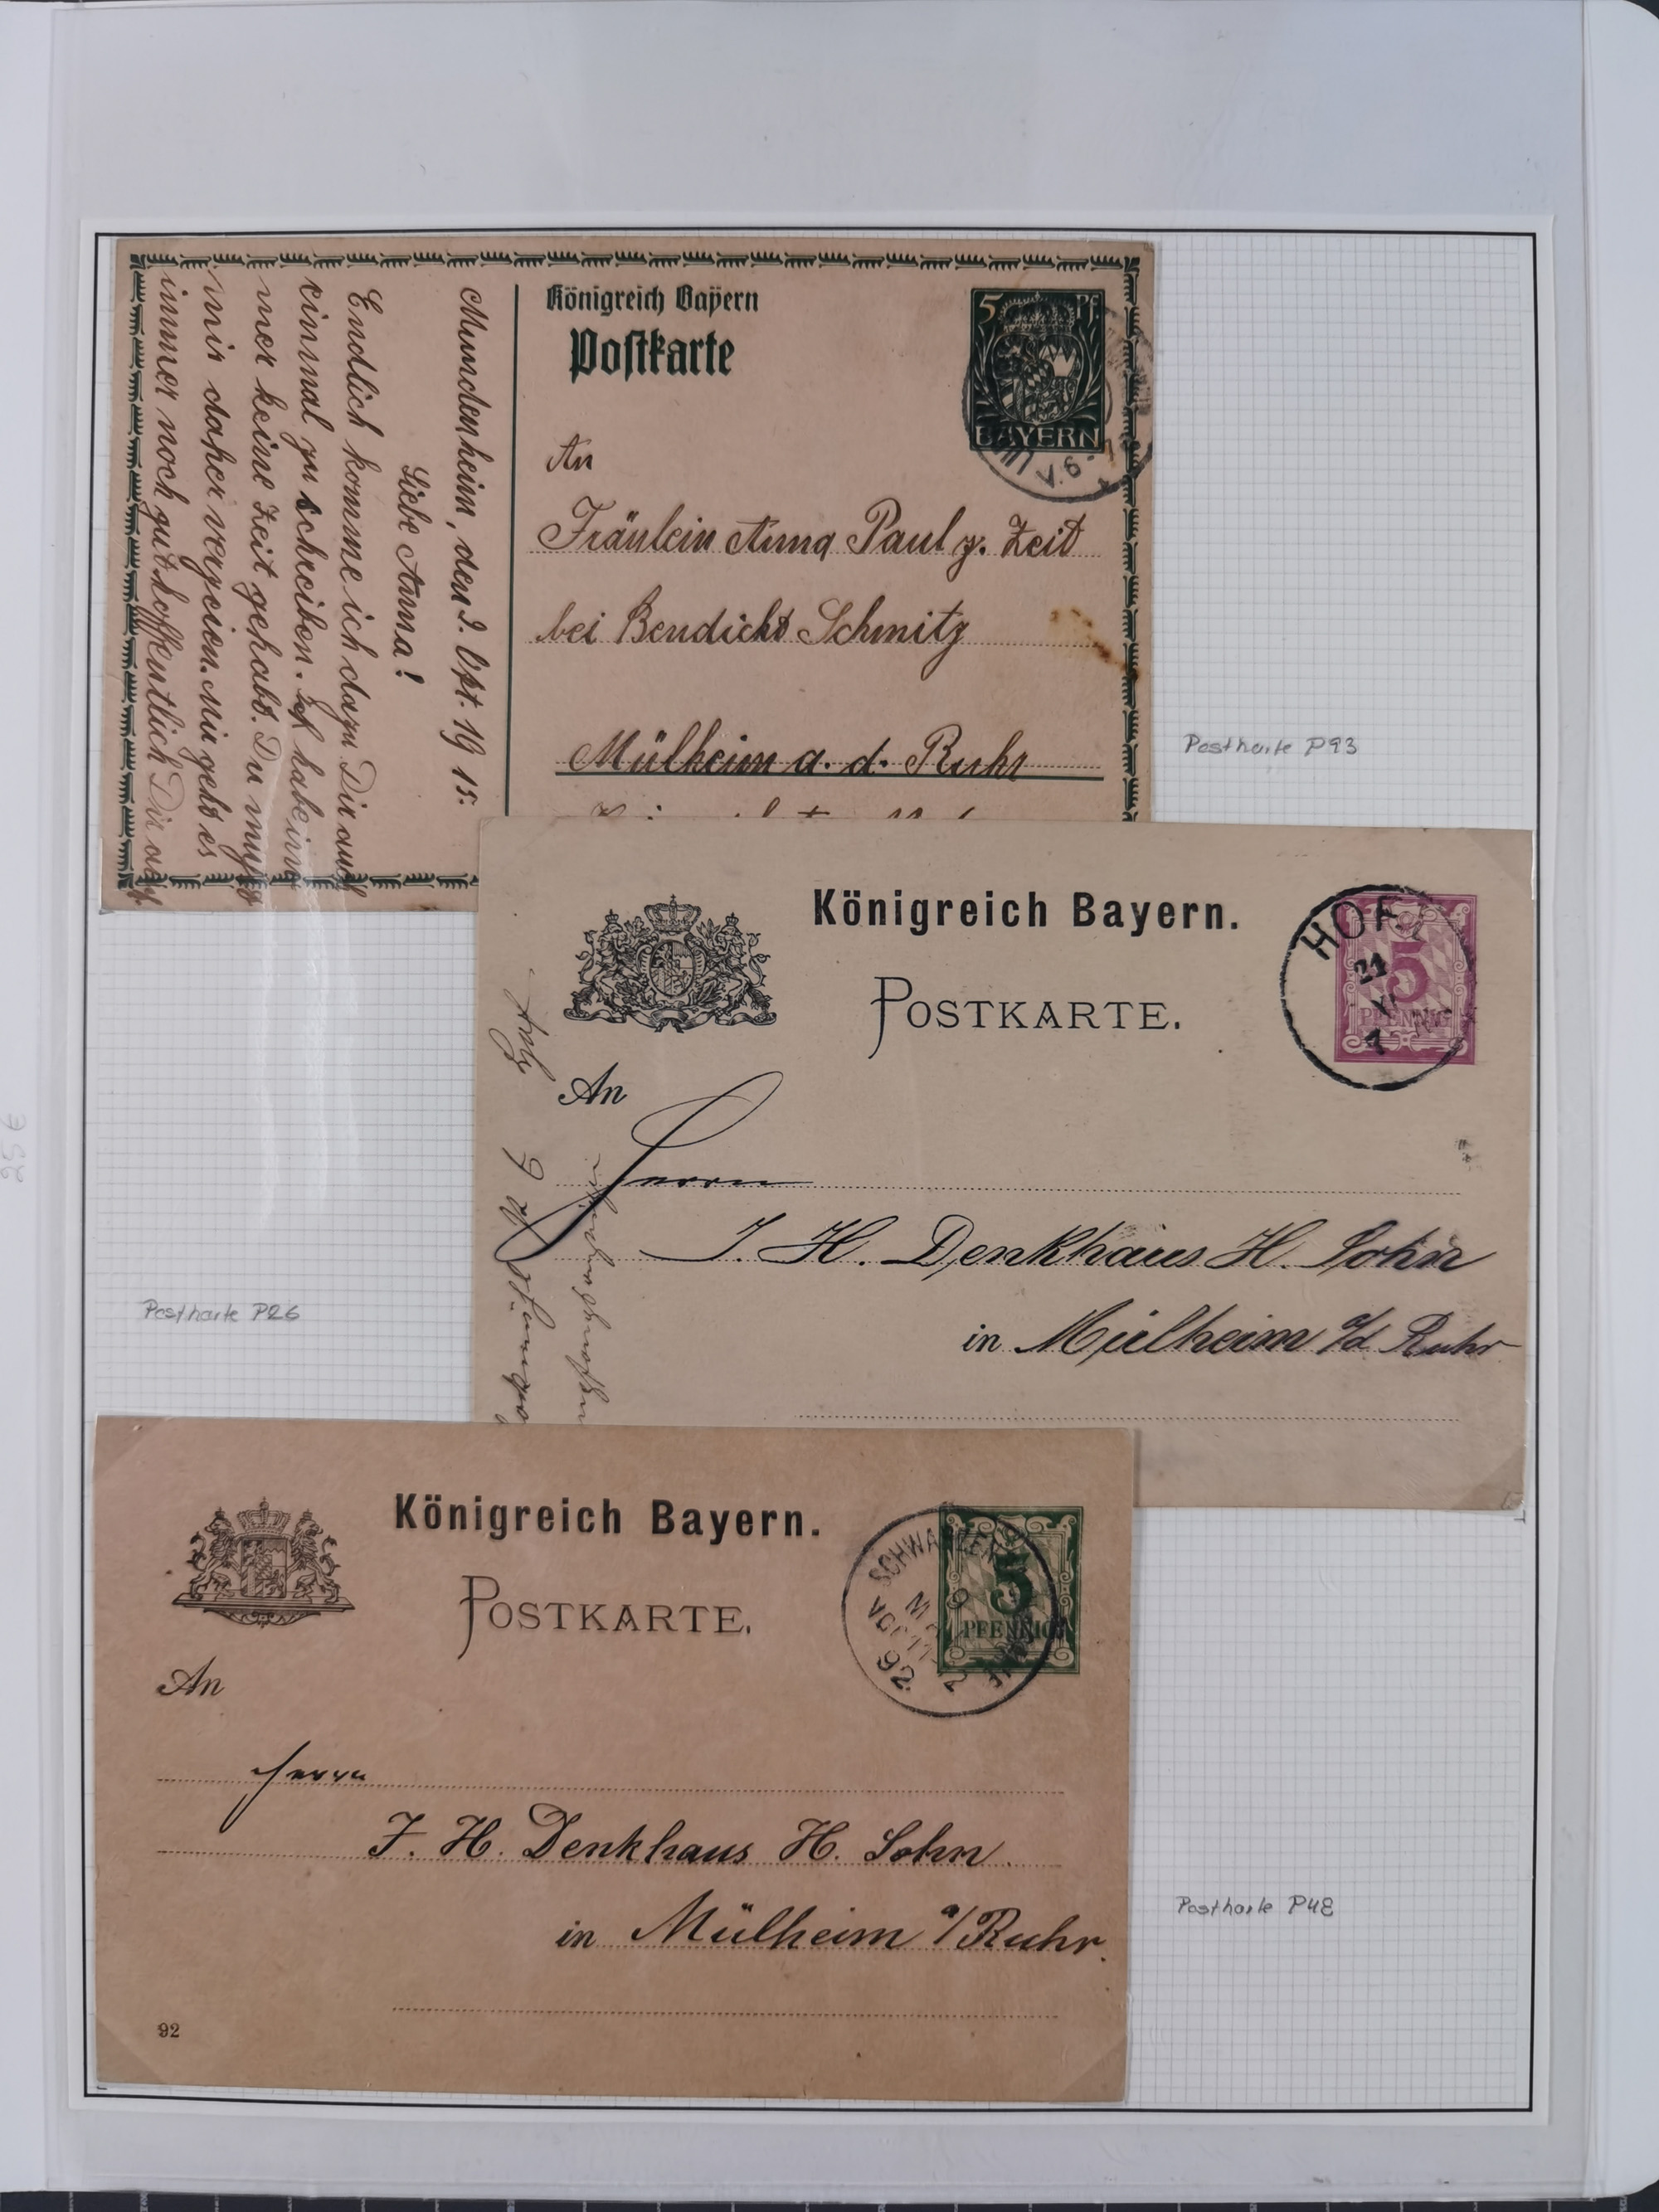 Mundenheim, den 9. Okt. 19 15.
Liebe Anna!
Endlich komme ich dazu Dir auch
einmal zu schreiben. Ich habe im
mer keine Zeit gehabt. Du mußt
mir daher verzeien. Mir geht es
immer noch gut. hoffentlich Dir auch
Königreich Bayern
Postkarte
5 Pf.
BAYERN
V. 6-7
An
Fräulein Anna Paul z. Zeit
bei Bendicht Schmitz
Mülheim a. d. Ruhr
Postkarte P93
Königreich Bayern.
POSTKARTE.
HOF
21
5
PFENNIG
An
Herrn
J. H. Denkhaus H. Sohn
in Mülheim a/d Ruhr
Postkarte P26
25 €
Königreich Bayern.
POSTKARTE.
5
PFENNIG
92
An
Herrn
J. H. Denkhaus H. Sohn
in Mülheim a/Ruhr.
92
Postkarte P48